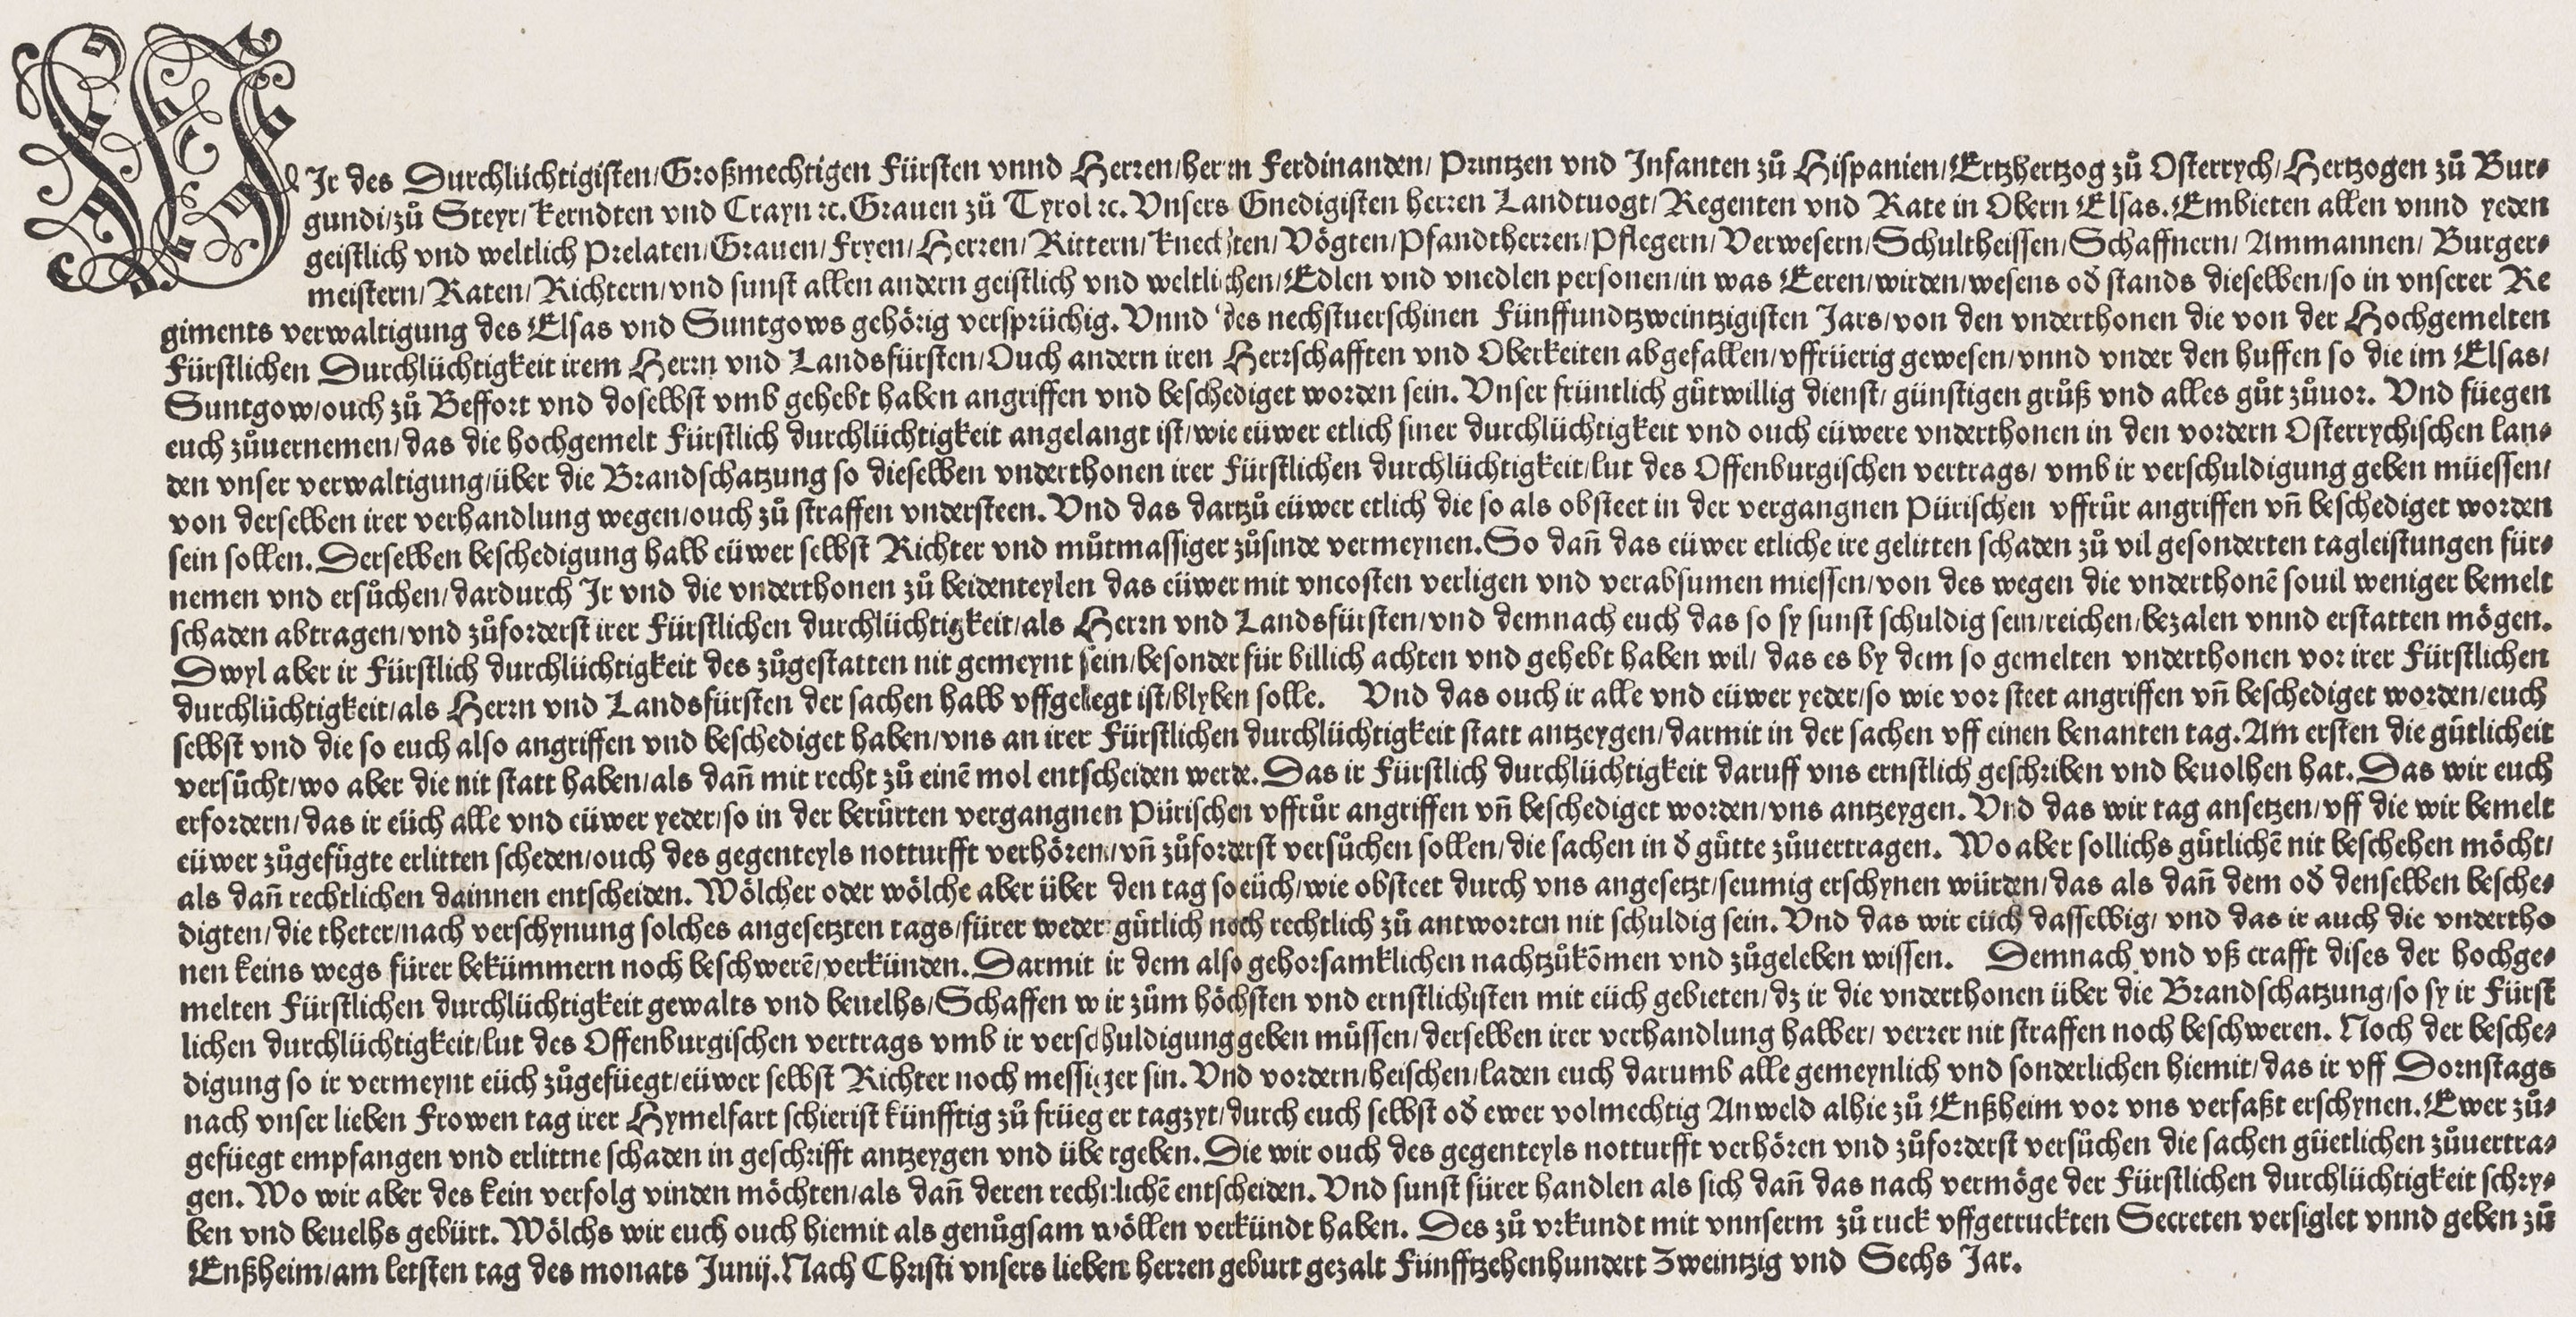 WIr des Durchlüchtigisten/Großmechtigen Fürsten vnnd Herren/herrn Ferdinanden/ Printzen vnd Infanten zů Hispanien/Ertzhertzog zů Osterrych/Hertzogen zů Bur⸗
gundi/zů Steyr/Kerndten vnd Crayn ꝛc. Grauen zů Tyrol ꝛc. Vnsers Gnedigisten herren Landtuogt/Regenten vnd Rate in Obern Elsas. Embieten allen vnnd yeden
geistlich vnd weltlich Prelaten/Grauen/Fryen/Herren/Rittern/Knechten/Vögten/Pfandtherren/Pflegern/Verwesern/Schultheissen/Schaffnern/Ammannen/Burger⸗
meistern/Raten/Richtern/vnd sunst allen andern geistlich vnd weltlichen/Edlen vnd vnedlen personen/in was Eeren/wirden/wesens oď stands dieselben/so in vnserer Re
giments verwaltigung des Elsas vnd Suntgows gehörig versprüchig. Vnnd des nechstuerschinen Fünffundtzweintzigisten Jars/von den vnderthonen die von der Hochgemelten
Fürstlichen Durchlüchtigkeit irem Herrn vnd Landsfürsten/Ouch andern iren Herrschafften vnd Oberkeiten abgefallen/vffrüerig gewesen/vnnd vnder den huffen so die im Elsas/
Suntgow/ouch zů Beffort vnd doselbst vmb gehebt haben angriffen vnd beschediget worden sein. Vnser früntlich gůtwillig dienst/günstigen grůß vnd alles gůt zůuor. Vnd füegen
euch zůuernemen/das die hochgemelt Fürstlich durchlüchtigkeit angelangt ist/wie eüwer etlich siner durchlüchtigkeit vnd ouch eüwere vnderthonen in den vordern Osterrychischen lan⸗
den vnser verwaltigung/über die Brandschatzung so dieselben vnderthonen irer Fürstlichen durchlüchtigkeit/lut des Offenburgischen vertrags/ vmb ir verschuldigung geben müessen/
von derselben irer verhandlung wegen/ouch zů straffen vndersteen. Vnd das dartzů eüwer etlich die so als obsteet in der vergangnen Pürischen vffrůr angriffen vn̄ beschediget worden
sein sollen. Derselben beschedigung halb eüwer selbst Richter vnd můtmassiger zůsinde vermeynen. So dan̄ das eüwer etliche ire gelitten schaden zů vil gesonderten tagleistungen für⸗
nemen vnd ersůchen/dardurch Ir vnd die vnderthonen zů beidenteylen das eüwer mit vncosten verligen vnd verabsumen miessen/von des wegen die vnderthonē souil weniger bemelt
schaden abtragen/vnd zůforderst irer Fürstlichen durchlüchtigkeit/als Herrn vnd Landsfürsten/vnd demnach euch das so sy sunst schuldig sein/reichen/bezalen vnnd erstatten mögen.
Dwyl aber ir Fürstlich durchlüchtigkeit des zůgestatten nit gemeynt sein/besonder für billich achten vnd gehebt haben wil/ das es by dem so gemelten vnderthonen vor irer Fürstlichen
durchlüchtigkeit/als Herrn vnd Landsfürsten der sachen halb vffgelegt ist/blyben solle. Vnd das ouch ir alle vnd eüwer yeder/so wie vor steet angriffen vn̄ beschediget worden/euch
selbst vnd die so euch also angriffen vnd beschediget haben/vns an irer Fürstlichen durchlüchtigkeit statt antzeygen/darmit in der sachen vff einen benanten tag. Am ersten die gůtlicheit
versůcht/wo aber die nit statt haben/als dan̄ mit recht zů einē mol entscheiden werde. Das ir Fürstlich durchlüchtigkeit daruff vns ernstlich geschriben vnd beuolhen hat. Das wir euch
erfordern/das ir eüch alle vnd eüwer yeder/so in der berürten vergangnen Pürischen vffrůr angriffen vn̄ beschediget worden/vns antzeygen. Vnd das wir tag ansetzen/vff die wir bemelt
eüwer zůgefügte erlitten scheden/ouch des gegenteyls notturfft verhören/vn̄ zůforderst versůchen sollen/die sachen in ď gütte zůuertragen. Wo aber sollichs gütlichē nit beschehen möcht/
als dan̄ rechtlichen dainnen entscheiden. Wölcher oder wölche aber über den tag so eüch/wie obsteet durch vns angesetzt/seumig erschynen würden/das als dan̄ dem oď denselben besche⸗
digten/die theter/nach verschynung solches angesetzten tags/fürer weder gütlich noch rechtlich zů antworten nit schuldig sein. Vnd das wir eüch dasselbig/ vnd das ir auch die vndertho
nen keins wegs fürer bekümmern noch beschwerē/verkünden. Darmit ir dem also gehorsamklichen nachtzůkōmen vnd zůgeleben wissen. Demnach vnd vß crafft dises der hochge⸗
melten Fürstlichen durchlüchtigkeit gewalts vnd beuelhs/Schaffen wir zům höchsten vnd ernstlichisten mit eüch gebieten/dz ir die vnderthonen über die Brandschatzung/so sy ir Fürst
lichen durchlüchtigkeit/lut des Offenburgischen vertrags vmb ir verschuldigung geben můssen/derselben irer verhandlung halber/ verrer nit straffen noch beschweren. Noch der besche⸗
digung so ir vermeynt eüch zůgefüegt/eüwer selbst Richter noch messiger sin. Vnd vordern/heischen/laden euch darumb alle gemeynlich vnd sonderlichen hiemit/das ir vff Dornstags
nach vnser lieben Frowen tag irer Hymelfart schierist künfftig zů früeger tagzyt/durch euch selbst oď ewer volmechtig Anweld alhie zů Enßheim vor vns verfaßt erschynen. Ewer zů⸗
gefüegt empfangen vnd erlittne schaden in geschrifft antzeygen vnd übergeben. Die wir ouch des gegenteyls notturfft verhören vnd zůforderst versůchen die sachen güetlichen zůuertra⸗
gen. Wo wir aber des kein verfolg vinden möchten/als dan̄ deren rechtlichē entscheiden. Vnd sunst fürer handlen als sich dan̄ das nach vermöge der Fürstlichen durchlüchtigkeit schry⸗
ben vnd beuelhs gebürt. Wölchs wir euch ouch hiemit als genůgsam wöllen verkündt haben. Des zů vrkundt mit vnnserm zů ruck vffgetruckten Secreten versiglet vnnd geben zů
Enßheim/am letsten tag des monats Junij. Nach Christi vnsers lieben herren geburt gezalt Fünfftzehenhundert Zweintzig vnd Sechs Jar.